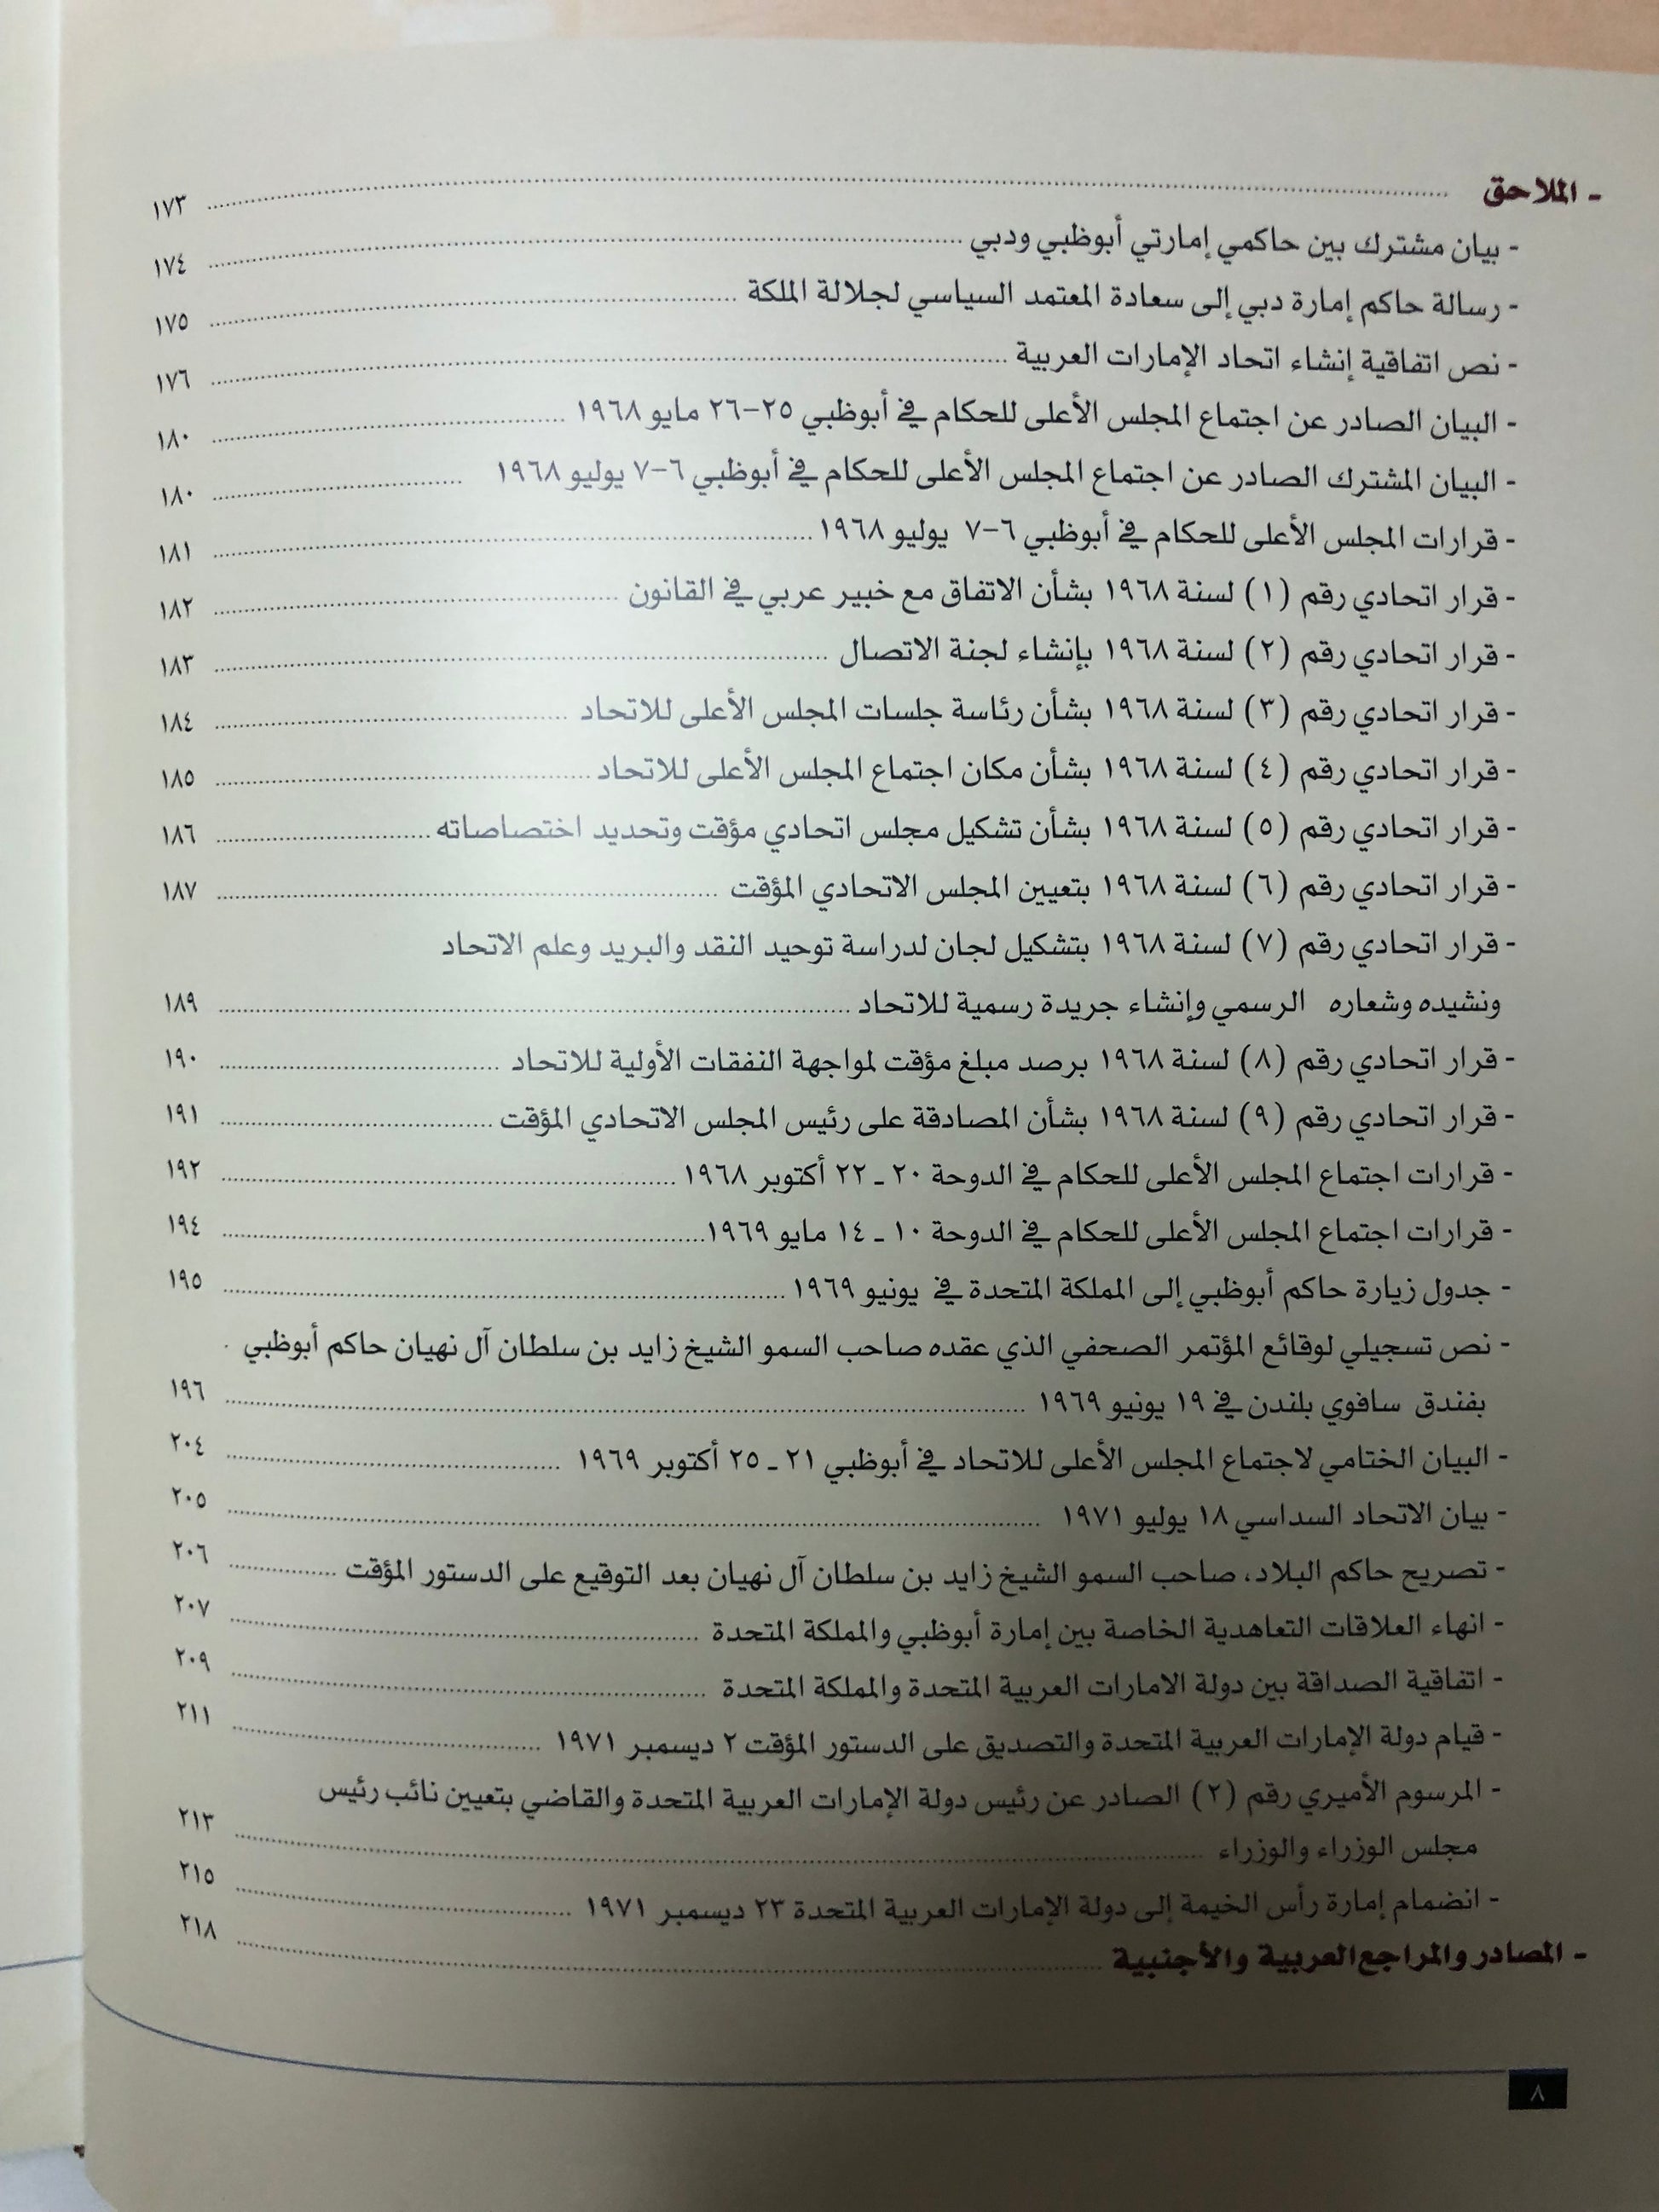 - الملاحق ........ ١٧٣
- بيان مشترك بين حاكمي إمارتي أبوظبي ودبي ........ ١٧٤
- رسالة حاكم إمارة دبي إلى سعادة المعتمد السياسي لجلالة الملكة ........ ١٧٥
- نص اتفاقية إنشاء اتحاد الإمارات العربية ........ ١٧٦
- البيان الصادر عن اجتماع المجلس الأعلى للحكام في أبوظبي ٢٥-٢٦ مايو ١٩٦٨ ........ ١٨٠
- البيان المشترك الصادر عن اجتماع المجلس الأعلى للحكام في أبوظبي ٦-٧ يوليو ١٩٦٨ ........ ١٨٠
- قرارات المجلس الأعلى للحكام في أبوظبي ٦-٧ يوليو ١٩٦٨ ........ ١٨١
- قرار اتحادي رقم (١) لسنة ١٩٦٨ بشأن الاتفاق مع خبير عربي في القانون ........ ١٨٢
- قرار اتحادي رقم (٢) لسنة ١٩٦٨ بإنشاء لجنة الاتصال ........ ١٨٣
- قرار اتحادي رقم (٣) لسنة ١٩٦٨ بشأن رئاسة جلسات المجلس الأعلى للاتحاد ........ ١٨٤
- قرار اتحادي رقم (٤) لسنة ١٩٦٨ بشأن مكان اجتماع المجلس الأعلى للاتحاد ........ ١٨٥
- قرار اتحادي رقم (٥) لسنة ١٩٦٨ بشأن تشكيل مجلس اتحادي مؤقت وتحديد اختصاصاته ........ ١٨٦
- قرار اتحادي رقم (٦) لسنة ١٩٦٨ بتعيين المجلس الاتحادي المؤقت ........ ١٨٧
- قرار اتحادي رقم (٧) لسنة ١٩٦٨ بتشكيل لجان لدراسة توحيد النقد والبريد وعلم الاتحاد
ونشيده وشعاره الرسمي وإنشاء جريدة رسمية للاتحاد ........ ١٨٩
- قرار اتحادي رقم (٨) لسنة ١٩٦٨ برصد مبلغ مؤقت لمواجهة النفقات الأولية للاتحاد ........ ١٩٠
- قرار اتحادي رقم (٩) لسنة ١٩٦٨ بشأن المصادقة على رئيس المجلس الاتحادي المؤقت ........ ١٩١
- قرارات اجتماع المجلس الأعلى للحكام في الدوحة ٢٠ ـ ٢٢ أكتوبر ١٩٦٨ ........ ١٩٢
- قرارات اجتماع المجلس الأعلى للحكام في الدوحة ١٠ ـ ١٤ مايو ١٩٦٩ ........ ١٩٤
- جدول زيارة حاكم أبوظبي إلى المملكة المتحدة في يونيو ١٩٦٩ ........ ١٩٥
- نص تسجيلي لوقائع المؤتمر الصحفي الذي عقده صاحب السمو الشيخ زايد بن سلطان آل نهيان حاكم أبوظبي
بفندق سافوي بلندن في ١٩ يونيو ١٩٦٩ ........ ١٩٦
- البيان الختامي لاجتماع المجلس الأعلى للاتحاد في أبوظبي ٢١ ـ ٢٥ أكتوبر ١٩٦٩ ........ ٢٠٤
- بيان الاتحاد السداسي ١٨ يوليو ١٩٧١ ........ ٢٠٥
- تصريح حاكم البلاد، صاحب السمو الشيخ زايد بن سلطان آل نهيان بعد التوقيع على الدستور المؤقت ........ ٢٠٦
- انهاء العلاقات التعاهدية الخاصة بين إمارة أبوظبي والمملكة المتحدة ........ ٢٠٧
- اتفاقية الصداقة بين دولة الامارات العربية المتحدة والمملكة المتحدة ........ ٢٠٩
- قيام دولة الإمارات العربية المتحدة والتصديق على الدستور المؤقت ٢ ديسمبر ١٩٧١ ........ ٢١١
- المرسوم الأميري رقم (٢) الصادر عن رئيس دولة الإمارات العربية المتحدة والقاضي بتعيين نائب رئيس
مجلس الوزراء والوزراء ........ ٢١٣
- انضمام إمارة رأس الخيمة إلى دولة الإمارات العربية المتحدة ٢٣ ديسمبر ١٩٧١ ........ ٢١٥
- المصادر والمراجع العربية والأجنبية ........ ٢١٨
٨